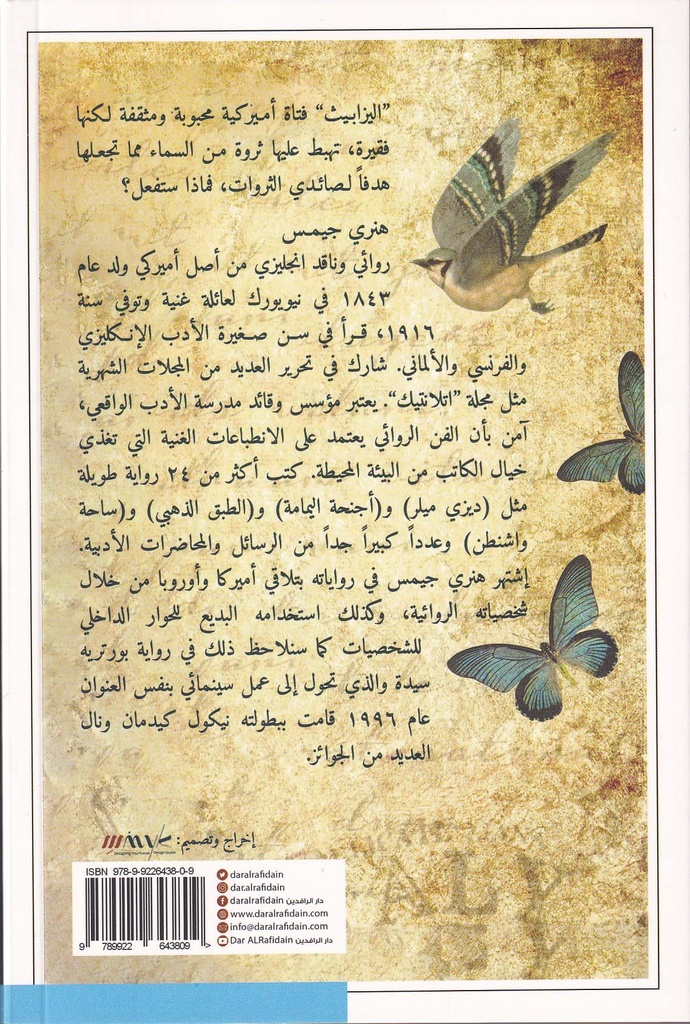 ”اليزابيث“ فتاة أميركية محبوبة ومثقفة لكنها
فقيرة، تهبط عليها ثروة من السماء مما تجعلها
هدفاً لصائدي الثروات، فماذا ستفعل؟
هنري جيمس
روائي وناقد انجليزي من أصل أميركي ولد عام
١٨٤٣ في نيويورك لعائلة غنية وتوفي سنة
١٩١٦، قرأ في سن صغيرة الأدب الإنكليزي
والفرنسي والألماني. شارك في تحرير العديد من المجلات الشهرية
مثل مجلة ”اتلانتيك“. يعتبر مؤسس وقائد مدرسة الأدب الواقعي،
آمن بأن الفن الروائي يعتمد على الانطباعات الغنية التي تغذي
خيال الكاتب من البيئة المحيطة. كتب أكثر من ٢٤ رواية طويلة
مثل (ديزي ميلر) و(أجنحة اليمامة) و(الطبق الذهبي) و(ساحة
واشنطن) وعدداً كبيراً جداً من الرسائل والمحاضرات الأدبية.
إشتهر هنري جيمس في رواياته بتلاقي أميركا وأوروبا من خلال
شخصياته الروائية، وكذلك استخدامه البديع للحوار الداخلي
للشخصيات كما سنلاحظ ذلك في رواية بورتريه
سيدة والذي تحول إلى عمل سينمائي بنفس العنوان
عام ١٩٩٦ قامت ببطولته نيكول كيدمان ونال
العديد من الجوائز.
إخراج وتصميم:
ISBN 978-9-9226438-0-9
9 789922 643809 >
daralrafidain
dar.alrafidain
daralrafidain دار الرافدين
www.daralrafidain.com
info@daralrafidain.com
Dar ALRafidain دار الرافدين
ALY